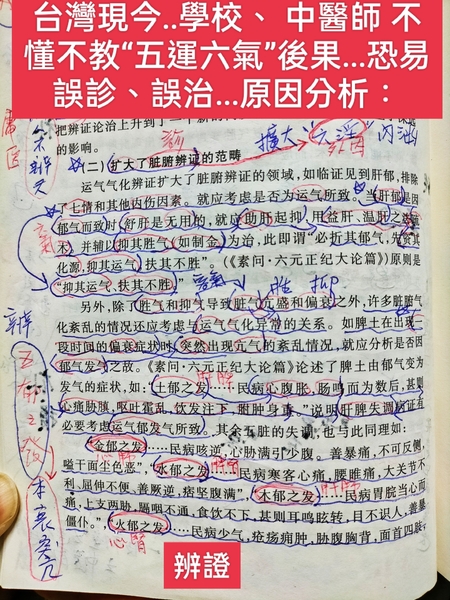 台灣現今..學校、 中醫師 不
懂不教“五運六氣”後果...恐易
誤診、誤治...原因分析：
把辨证论治上升到了一个新的
的影响。
擴大 六淫 內涵
(二) 扩大了脏腑辨证的范畴
运气气化辨证扩大了脏腑辨证的领域，如临证见到肝郁，排除
了七情和其他内伤因素。就应考虑是否为运气所致。当肝郁是因
郁气而致时，舒肝是无用的，就应助肝起抑，用益肝、温肝之滋
木，并辅以抑其胜气（如制金）为治，此即谓“必折其郁气，先资其
化源，抑其运气，扶其不胜”。（《素问·六元正纪大论篇》）原则是
“抑其运气，扶其不胜。”
胜 抑
另外，除了胜气和抑气导致脏气亢盛和偏衰之外，许多脏腑气
化紊乱的情况还应考虑与运气气化异常的关系。如脾土在出现一
段时间的偏衰症状时，突然出现亢气的紊乱情况，就应分析是否因
郁气发气之故。《素问·六元正纪大论篇》论述了脾土由郁气变为
发气的症状，如：“土郁之发……民病心腹胀，肠鸣而为数后，甚则
心痛胁䐜，呕吐霍乱，饮发注下，胕肿身重，”说明肝脾失调病证有
必要考虑运气郁发气所致。其余五脏的失调，也与此同理如：
“金郁之发……民病咳逆，心胁满引少腹。善暴痛，不可反侧，
嗌干面尘色恶”，“水郁之发……民病寒客心痛，腰脽痛，大关节不
利、屈伸不便，善厥逆，痞坚腹满”，“木郁之发……民病胃脘当心而
痛，上支两胁，膈咽不通，食饮不下，甚则耳鸣眩转，目不识人，善暴
僵仆。”，“火郁之发……民病少气，疮疡痈肿，胁腹胸背，面首四肢，
辨
五郁之發
辨證